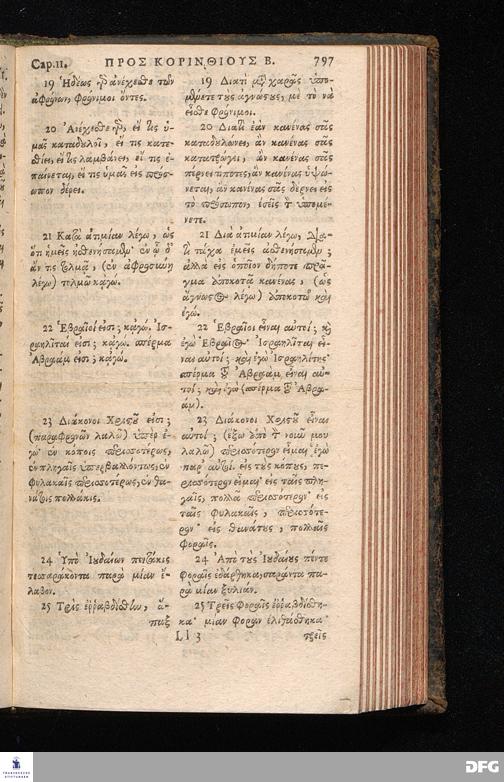 Cap. 11. ΠΡΟΣ ΚΟΡΙΝΘΙΟΥΣ Β. 797
19 Ἡδέως γὰρ ἀνέχεσθε τῶν
ἀφρόνων, φρόνιμοι ὄντες.
20 Ἀνέχεσθε γὰρ, εἴ τις ὑ-
μᾶς καταδουλοῖ, εἴ τις κατε-
σθίει, εἴ τις λαμβάνει, εἴ τις ἐ-
παίρεται, εἴ τις ὑμᾶς εἰς πρόσ-
ωπον δέρει.
21 Κατὰ ἀτιμίαν λέγω, ὡς
ὅτι ἡμεῖς ἠσθενήσαμεν· ἐν ᾧ δ᾽
ἄν τις τολμᾷ, (ἐν ἀφροσύνῃ
λέγω) τολμῶ κᾀγώ.
22 Ἑβραῖοί εἰσι; κᾀγώ. Ἰσ-
ραηλῖταί εἰσι; κᾀγώ. σπέρμα
Ἀβραάμ εἰσι; κᾀγώ.
23 Διάκονοι Χριστοῦ εἰσι;
(παραφρονῶν λαλῶ) ὑπὲρ ἐ-
γώ· ἐν κόποις περισσοτέρως,
ἐν πληγαῖς ὑπερβαλλόντως, ἐν
φυλακαῖς περισσοτέρως, ἐν θα-
νάτοις πολλάκις.
24 Ὑπὸ Ἰουδαίων πεντάκις
τεσσαράκοντα παρὰ μίαν ἔ-
λαβον.
25 Τρὶς ἐῤῥαβδίσθην, ἅ-
παξ
19 Διατὶ μὲ χαρᾶς ὑπο-
μένετε τοὺς ἀγνώστους, μὲ τὸ νὰ
εἶσθε φρόνιμοι.
20 Διατὶ ἐὰν κανένας σᾶς
καταδουλώνει, ἂν κανένας σᾶς
κατατρώγει, ἂν κανένας σᾶς
πέρνει τίποτες, ἂν κανένας ὑψώ-
νεται, ἂν κανένας σᾶς δέρνει εἰς
τὸ πρόσωπον, ἐσεῖς τὸν ὑπομέ-
νετε.
21 Διὰ ἀτιμίαν λέγω, Δια-
τὶ τάχα ἐμεῖς ἀσθενήσαμεν;
ἀλλὰ εἰς ὁποῖον δήποτε πρᾶ-
γμα ἀποκοτᾶ κανένας, (ὡς
ἄγνωστος λέγω) ἀποκοτῶ καὶ
ἐγώ.
22 Ἑβραῖοι εἶναι αὐτοί; καὶ
ἐγὼ Ἑβραῖος· Ἰσραηλῖται εἶ-
ναι αὐτοί; καὶ ἐγὼ Ἰσραηλίτης·
σπέρμα τοῦ Ἀβραὰμ εἶναι αὐ-
τοί; καὶ ἐγὼ (σπέρμα τοῦ Ἀβρα-
άμ).
23 Διάκονοι Χριστοῦ εἶναι
αὐτοί; (ἔξω ἀπὸ τὸν νοῦν μου
λαλῶ) περισσότερον εἶμαι ἐγὼ
παρ᾽ αὐτοί. εἰς τοὺς κόπους, πε-
ρισσότερον εἶμαι· εἰς ταῖς πλη-
γαῖς, πολλὰ περισσότερον· εἰς
ταῖς φυλακαῖς, περισσότε-
ρον· εἰς θανάτους, πολλαῖς
φοραῖς.
24 Ἀπὸ τοὺς Ἰουδαίους πέντε
φοραῖς ἐδάρθηκα, σαράντα πα-
ρὰ μίαν ξυλιαν.
25 Τρεῖς φοραῖς ἐῤῥαβδίσθη-
κα· μίαν φορὰν ἐλιθάσθηκα·
Ll 3 τρεῖς
FRANCKESCHE
STIFTUNGEN
DFG